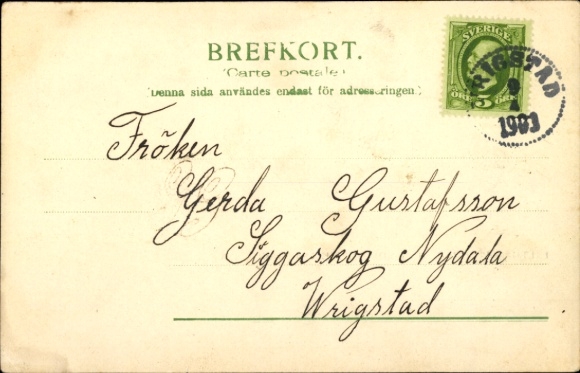 BREFKORT.
(Carte postale)
(Denna sida användes endast för adresseringen.)
SVERIGE
5
WRIGSTAD
9
1
1903
Fröken
Gerda Gustafsson
Siggaskog Nydala
Wrigstad